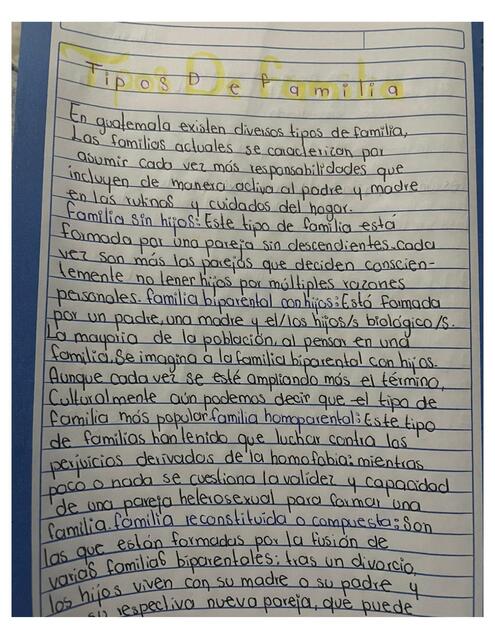 Tipos De familia
En guatemala existen diversos tipos de familia,
Las familias actuales se caracterizan por
asumir cada vez más responsabilidades que
incluyen de manera activa al padre y madre
en las rutinas y cuidados del hogar.
familia sin hijos: Este tipo de familia está
formada por una pareja sin descendientes. cada
vez son más las parejas que deciden conscien-
temente no tener hijos por múltiples razones
personales. familia biparental con hijos: Está formada
por un padre, una madre y el/los hijos/s biológico/s.
La mayoria de la población, al pensar en una
familia. Se imagina a la familia biparental con hijos.
Aunque cada vez se esté ampliando más el término,
Culturalmente aún podemos decir que el tipo de
familia más popular familia homoparental: Este tipo
de familias han tenido que luchar contra los
perjuicios derivados de la homofobia: mientras
poco o nada se cuestiona la validez y capacidad
de una pareja heterosexual para formar una
familia. familia reconstituida o compuesta: Son
las que están formadas por la fusión de
varias familias biparentales: tras un divorcio,
los hijos viven con su madre o su padre y
su respectiva nueva pareja, que puede